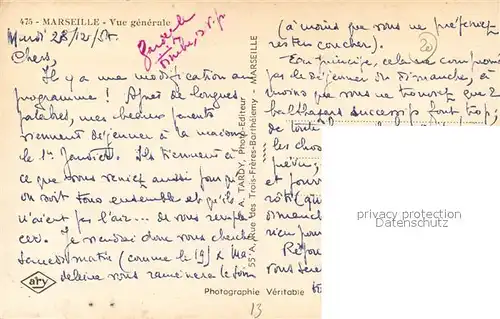 475 - MARSEILLE - Vue générale
Mardi 28/12/54
Chers,
Il y a une modification au
programme ! Après de longues
palabres, mes beaux parents
viennent déjeuner à la maison
le 1er Janvier. Ils tiennent à
ce que vous veniez aussi pour qu'
on soit tous ensemble et qu'ils
n'aient pas l'air... de vous rempla
cer. Je viendrai donc vous chercher
samedi matin (comme le 19) & Ma-
deleine vous ramènera le soir
(à moins que vous ne préfériez
rester coucher).
En principe, cela ne compromet
pas le déjeuner du dimanche, à
moins que vous ne trouviez que 2
balthazars successifs font trop,
de toute
les choses
prévu,
et pouvo
rôti (qu
dimanche
rien pour
Répon
vous sere
A. TARDY, Photo-Editeur
55 A, Rue des Trois-Frères-Barthélemy - MARSEILLE
ary
Photographie Véritable
20
13
property protection
Datenschutz